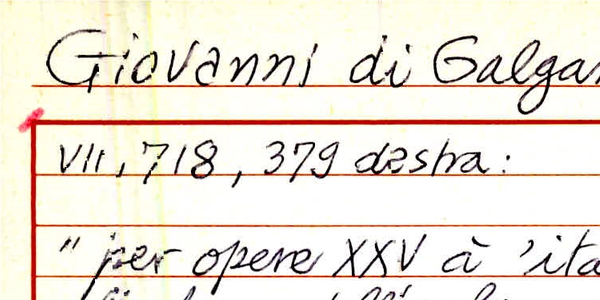 Giovanni di Galga
VII, 718, 379 destra:
" per opere XXV à 'ita